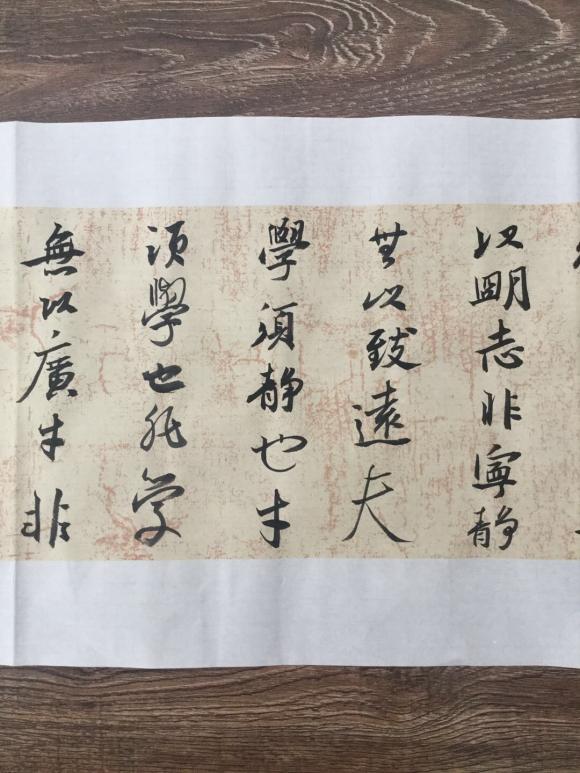 以明志非寧靜
無以致遠夫
學須静也才
須學也非学
無以廣才非